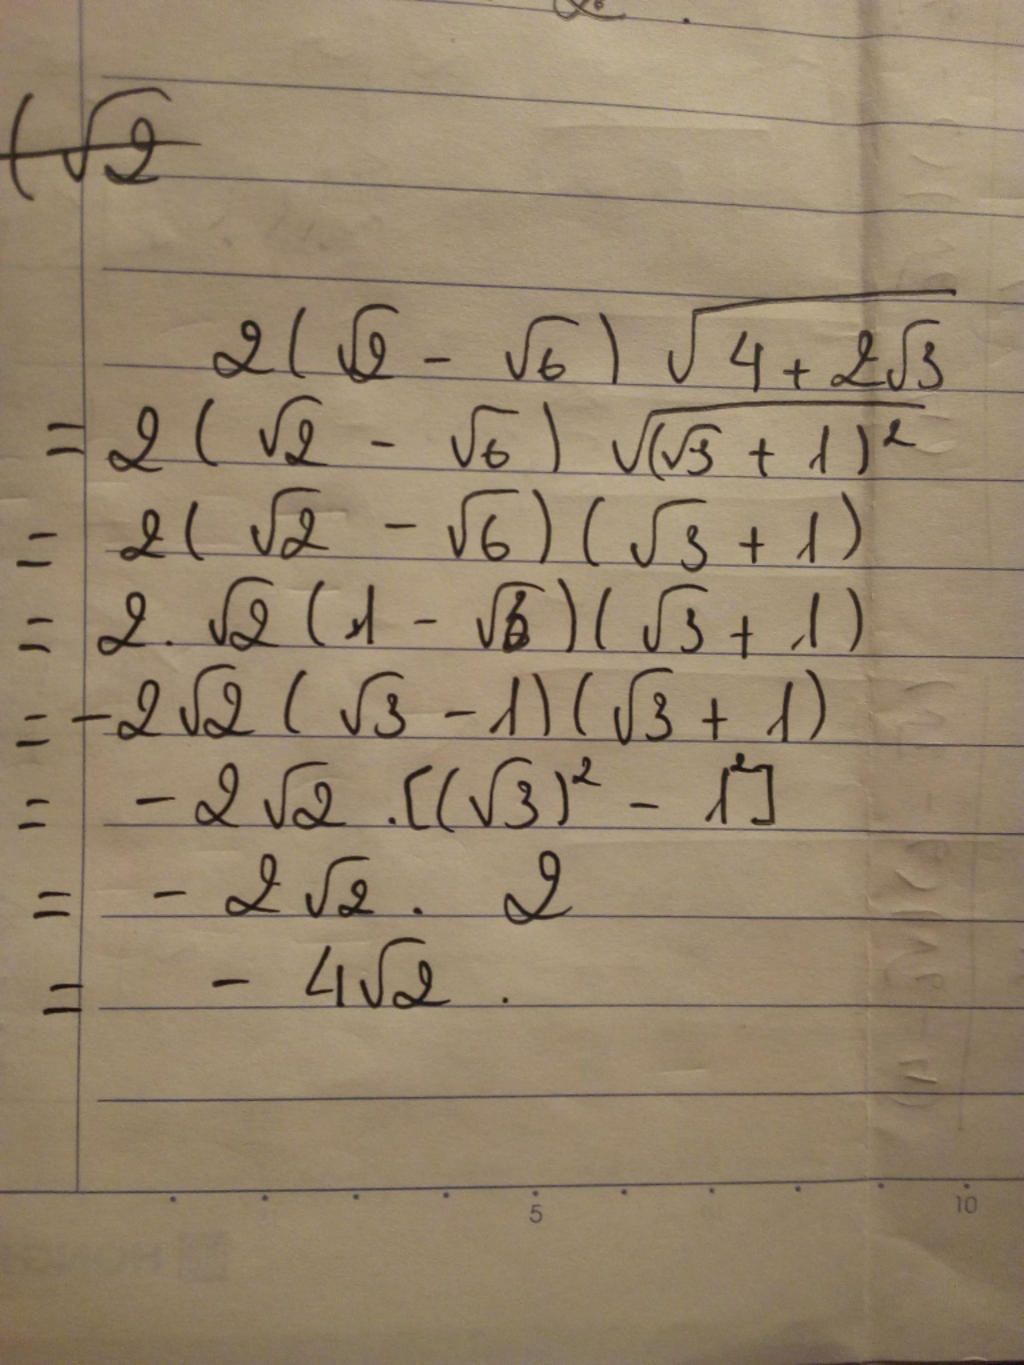 (√2
2(√2 - √6) √(4 + 2√3)
= 2(√2 - √6) √((√3 + 1)²)
= 2(√2 - √6)(√3 + 1)
= 2.√2(1 - √3)(√3 + 1)
= -2√2(√3 - 1)(√3 + 1)
= -2√2.[(√3)² - 1²]
= -2√2. 2
= -4√2.
5 10